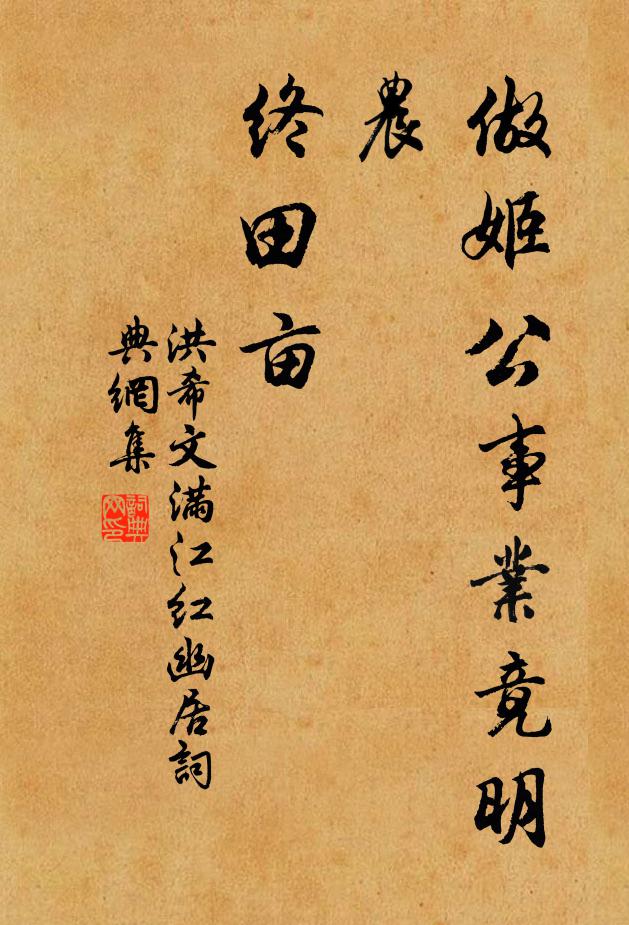 做姬公事業竟明
農
終田亩
洪希文满江红幽居詞
典網集
詞典
网印